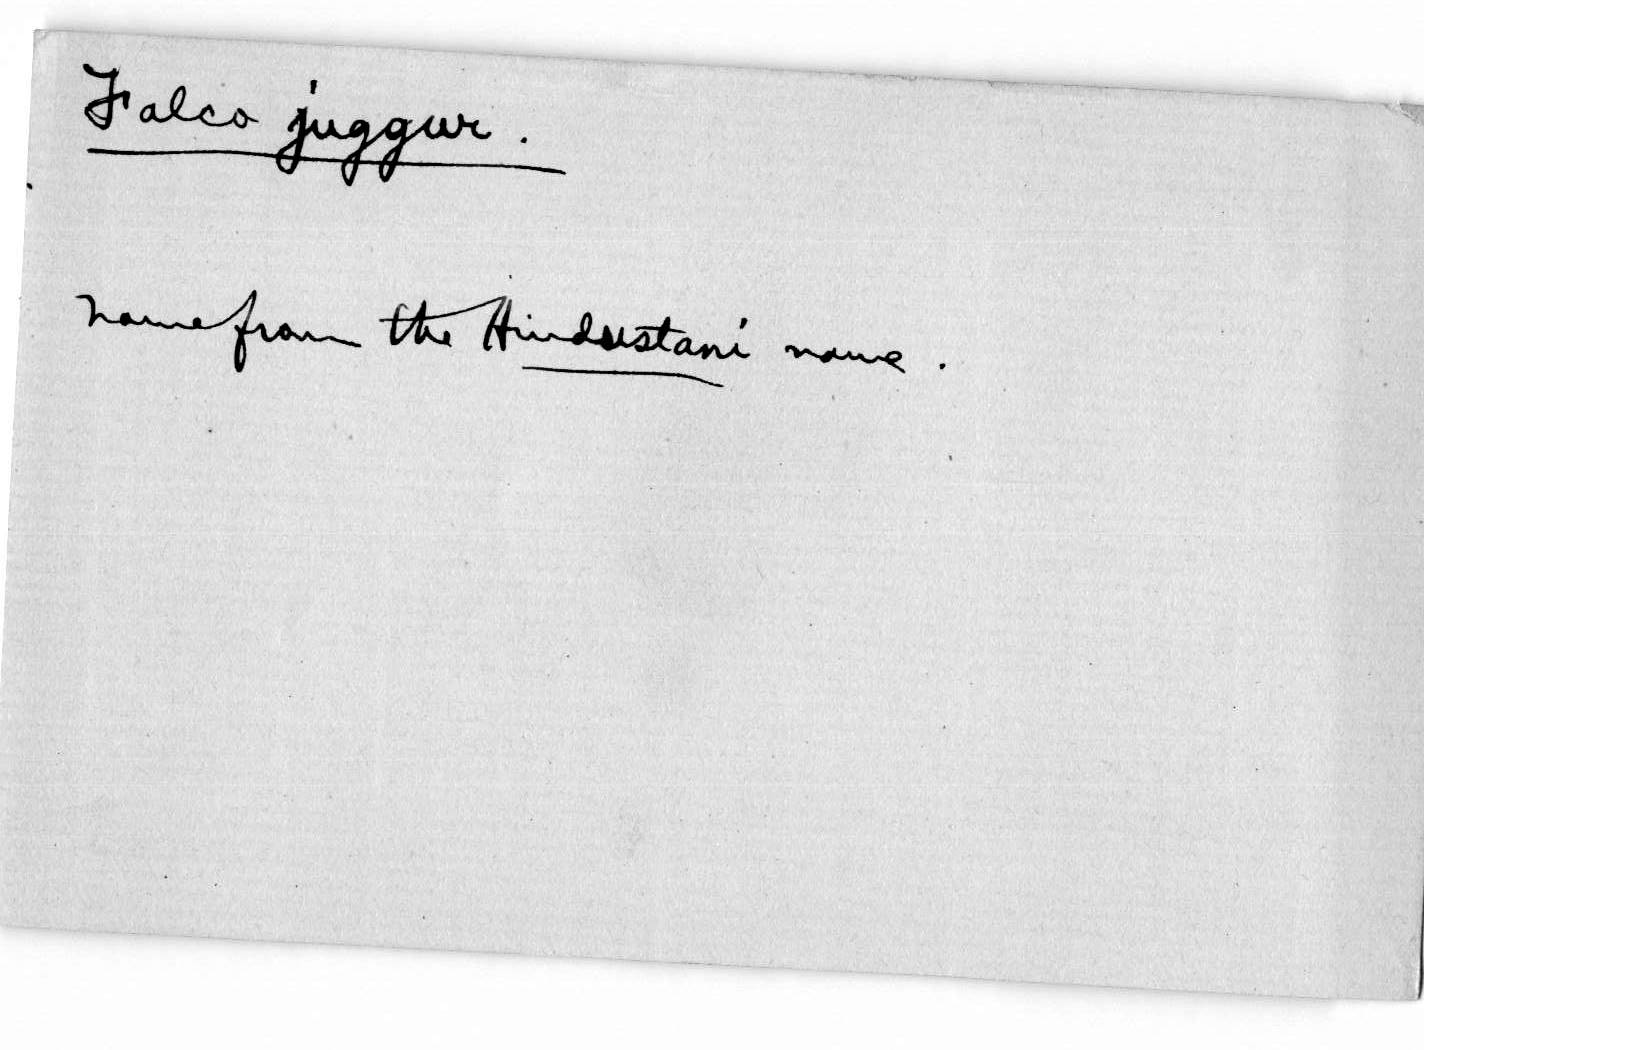 Falco juggur.
name from the Hindustani name.